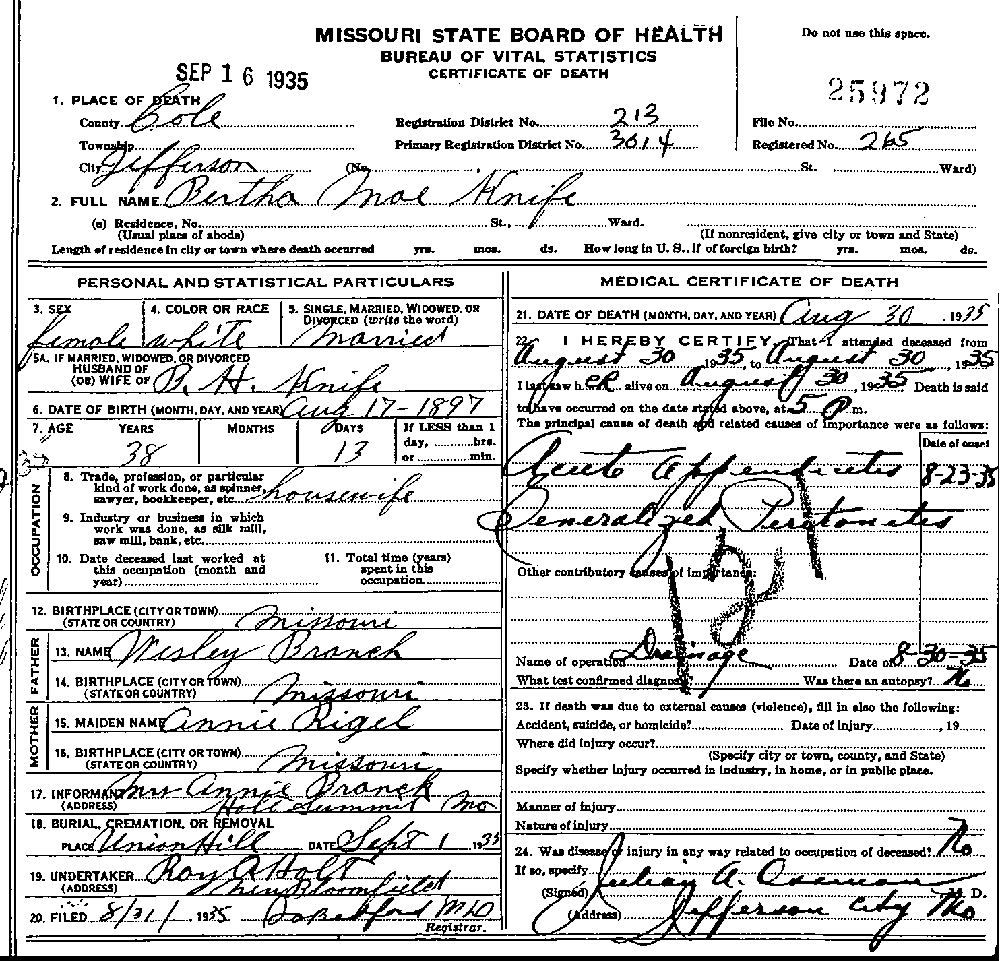 MISSOURI STATE BOARD OF HEALTH
BUREAU OF VITAL STATISTICS
CERTIFICATE OF DEATH
Do not use this space.
SEP 16 1935
25972
1. PLACE OF DEATH
County Cole Registration District No. 213 File No.
Township Primary Registration District No. 3014 Registered No. 265
City Jefferson (No. St. Ward)
2. FULL NAME Bertha Mae Knife
(a) Residence, No. St., Ward.
(Usual place of abode) (If nonresident, give city or town and State)
Length of residence in city or town where death occurred yrs. mos. ds. How long in U. S., if of foreign birth? yrs. mos. ds.
PERSONAL AND STATISTICAL PARTICULARS
3. SEX 4. COLOR OR RACE 5. SINGLE, MARRIED, WIDOWED, OR
DIVORCED (write the word)
female white Married
5A. IF MARRIED, WIDOWED, OR DIVORCED
HUSBAND OF
(OR) WIFE OF B. H. Knife
6. DATE OF BIRTH (MONTH, DAY, AND YEAR) Aug 17-1897
7. AGE YEARS MONTHS DAYS If LESS than 1
day, hrs.
38 13 or min.
OCCUPATION
8. Trade, profession, or particular
kind of work done, as spinner,
sawyer, bookkeeper, etc. housewife
9. Industry or business in which
work was done, as silk mill,
saw mill, bank, etc.
10. Date deceased last worked at
this occupation (month and
year)
11. Total time (years)
spent in this
occupation
12. BIRTHPLACE (CITY OR TOWN)
(STATE OR COUNTRY) Missouri
FATHER
13. NAME Wesley Branch
14. BIRTHPLACE (CITY OR TOWN)
(STATE OR COUNTRY) Missouri
MOTHER
15. MAIDEN NAME Annie Rigel
16. BIRTHPLACE (CITY OR TOWN)
(STATE OR COUNTRY) Missouri
17. INFORMANT Mrs Annie Branch
(ADDRESS) Holt Summit Mo
18. BURIAL, CREMATION, OR REMOVAL
PLACE Union Hill DATE Sept 1 1935
19. UNDERTAKER Roy A Holt
(ADDRESS) New Bloomfield
20. FILED 8/31/ 1935 MD
Registrar.
MEDICAL CERTIFICATE OF DEATH
21. DATE OF DEATH (MONTH, DAY, AND YEAR) Aug 30 , 1935
22. I HEREBY CERTIFY, That I attended deceased from
August 30 1935, to August 30, 1935
I last saw her alive on August 30, 1935 Death is said
to have occurred on the date stated above, at 5 P m.
The principal cause of death and related causes of importance were as follows:
Date of onset
Acute Appendicites 8-23-35
Generalized Peritonites
121
Other contributory causes of importance:
Name of operation Drainage Date of 8-30-35
What test confirmed diagnosis? Was there an autopsy? No
23. If death was due to external causes (violence), fill in also the following:
Accident, suicide, or homicide? Date of injury , 19
Where did injury occur?
(Specify city or town, county, and State)
Specify whether injury occurred in industry, in home, or in public place.
Manner of injury
Nature of injury
24. Was disease or injury in any way related to occupation of deceased? No
If so, specify
(Signed) Julian A. Ossman M. D.
(Address) Jefferson City Mo